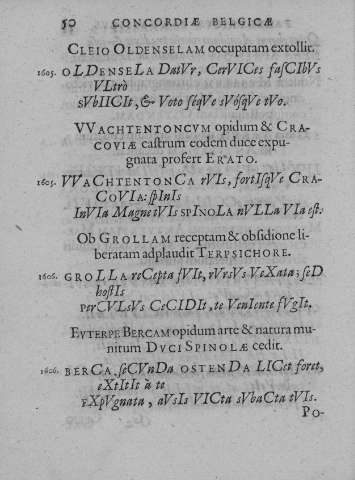 50 CONCORDIÆ BELGICÆ
CLEIO OLDENSELAM occupatam extollit.
1605. OLDENSELA DatVr, CerVICes fasCIbVs
VLtrò
sVbIICIt, & Voto séqVe sVósqVe tVo.
VVACHTENTONCVM opidum & CRA-
COVIÆ castrum eodem duce expu-
gnata profert ERATO.
1605. VVaCHTENTONCA rVIs, fortIsqVe CRA-
CoVIA: spInIs
InVIa Magne tVIs SPINOLA nVLLa VIa est.
Ob GROLLAM receptam & obsidione li-
beratam adplaudit TERPSICHORE.
1606. GROLLA reCepta fVIt, rVrsVs VeXata; seD
hostIs
perCVLsVs CeCIDIt, te VenIente fVgIt.
EVTERPE BERCAM opidum arte & natura mu-
nitum DVCI SPINOLÆ cedit.
1606. BERCA, seCVnDa OSTENDA LICet foret,
eXtItIt à te
EXpVgnata, aVsIs VICta sVbaCta tVIs.
PO-